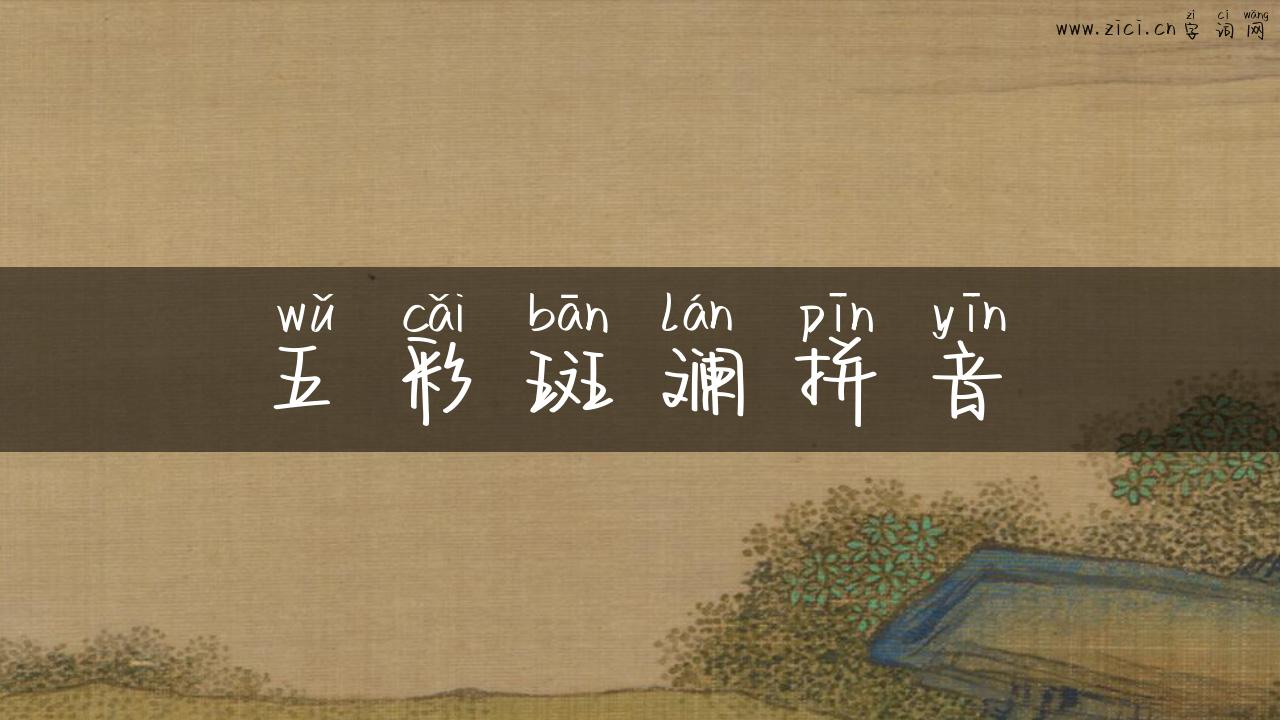 zì cí wǎng
www.zici.cn 字词网
wǔ cǎi bān lán pīn yīn
五彩斑斓拼音